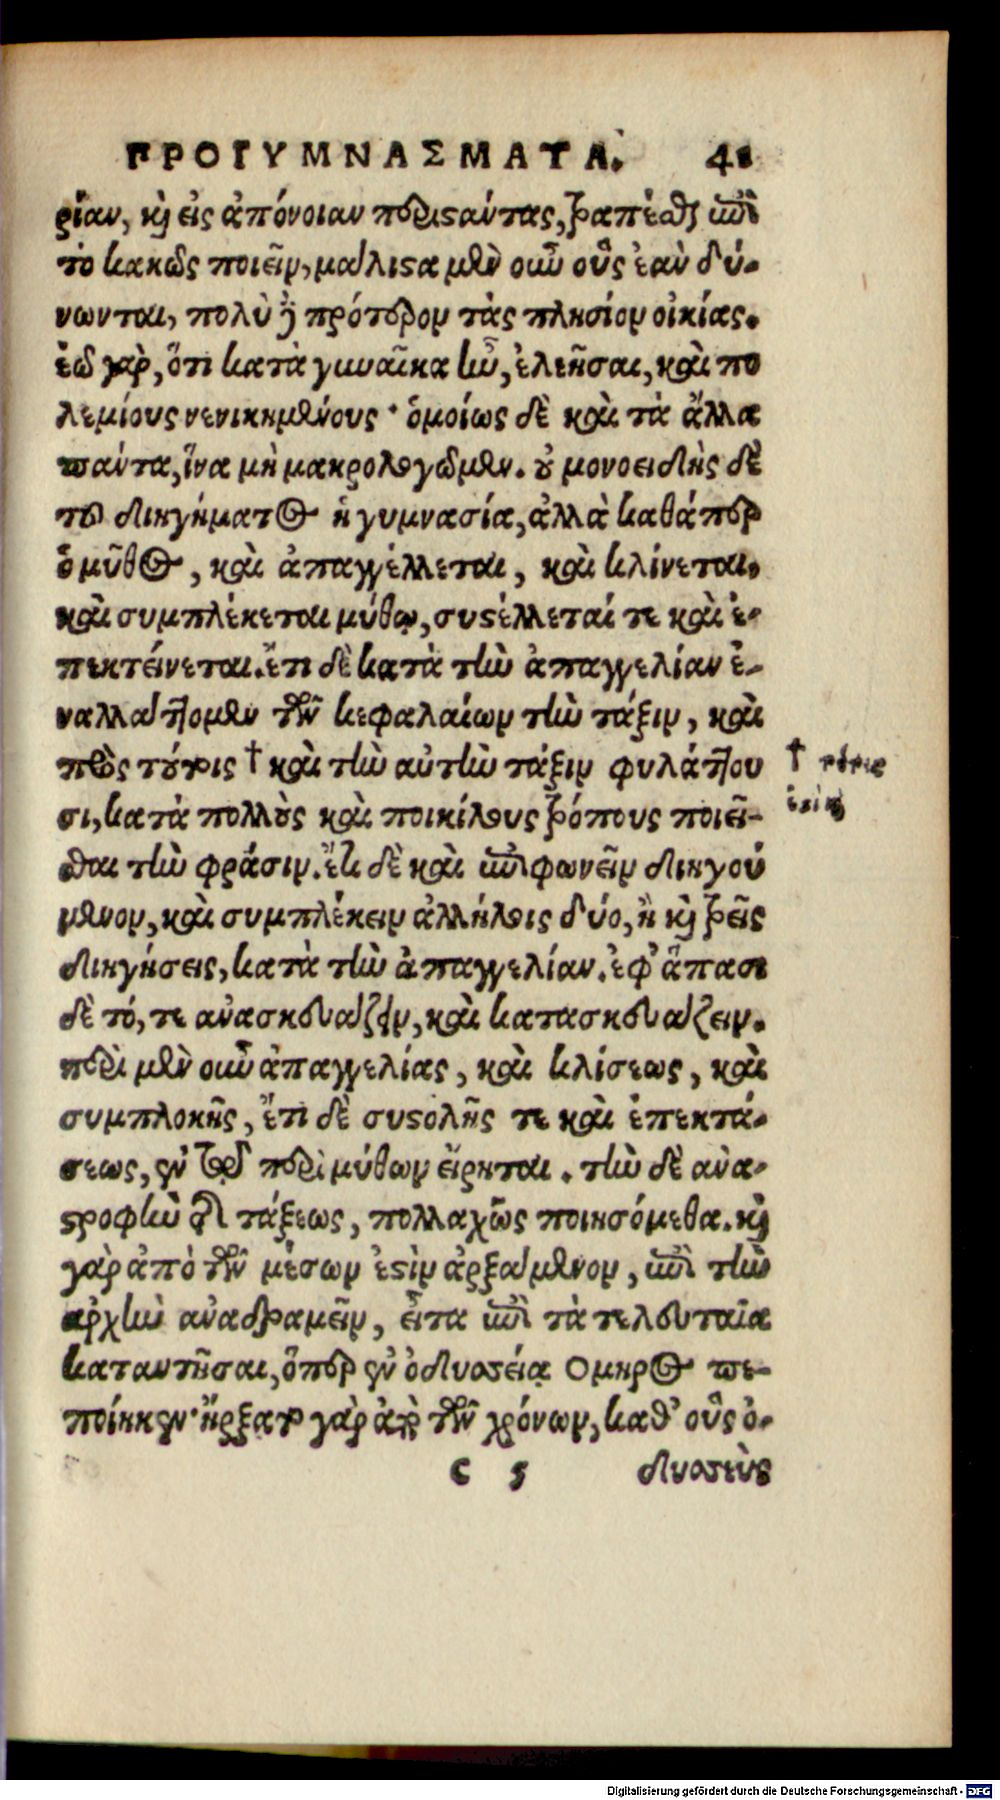 ΠΡΟΓΥΜΝΑΣΜΑΤΑ. 41
ρίαν, καὶ εἰς ἀπόνοιαν περιστάντας, τραπέσθαι ἐπὶ
τὸ κακῶς ποιεῖν, μάλιστα μὲν οὖν οὓς ἐὰν δύ-
νωνται, πολὺ δὲ πρότερον τὰς πλησίον οἰκίας.
ἐῶ γὰρ, ὅτι κατὰ γυναῖκα ἦν, ἐλεῆσαι, καὶ πο
λεμίους νενικημένους · ὁμοίως δὲ καὶ τὰ ἄλλα
πάντα, ἵνα μὴ μακρολογῶμεν. οὐ μονοειδὴς δὲ
τοῦ διηγήματος ἡ γυμνασία, ἀλλὰ καθάπερ
ὁ μῦθος, καὶ ἀπαγγέλλεται, καὶ κλίνεται,
καὶ συμπλέκεται μύθῳ, συστέλλεταί τε καὶ ἐ-
πεκτείνεται. ἔτι δὲ κατὰ τὴν ἀπαγγελίαν ἐ-
ναλλάττομεν τῶν κεφαλαίων τὴν τάξιν, καὶ
πρὸς τούτοις † καὶ τὴν αὐτὴν τάξιν φυλάττου
σι, κατὰ πολλοὺς καὶ ποικίλους τρόπους ποιεῖ-
σθαι τὴν φράσιν. ἔτι δὲ καὶ ἐπιφωνεῖν διηγού
μενον, καὶ συμπλέκειν ἀλλήλοις δύο, ἢ καὶ τρεῖς
διηγήσεις, κατὰ τὴν ἀπαγγελίαν. ἐφ' ἅπασι
δὲ τό, τε ἀνασκευάζειν, καὶ κατασκευάζειν.
περὶ μὲν οὖν ἀπαγγελίας, καὶ κλίσεως, καὶ
συμπλοκῆς, ἔτι δὲ συστολῆς τε καὶ ἐπεκτά-
σεως, ἐν τῷ περὶ μύθων εἴρηται. τὴν δὲ ἀνα-
στροφὴν τῆς τάξεως, πολλαχῶς ποιησόμεθα. καὶ
γὰρ ἀπὸ τῶν μέσων ἐστὶν ἀρξάμενον, ἐπὶ τὴν
ἀρχὴν ἀναδραμεῖν, εἶτα ἐπὶ τὰ τελευταῖα
καταντῆσαι, ὅπερ ἐν ὀδυσσείᾳ Ομηρος πε-
ποίηκεν· ἤρξατο γὰρ ἀπὸ τῶν χρόνων, καθ' οὓς ὀ-
c 5 δυσσεὺς
†